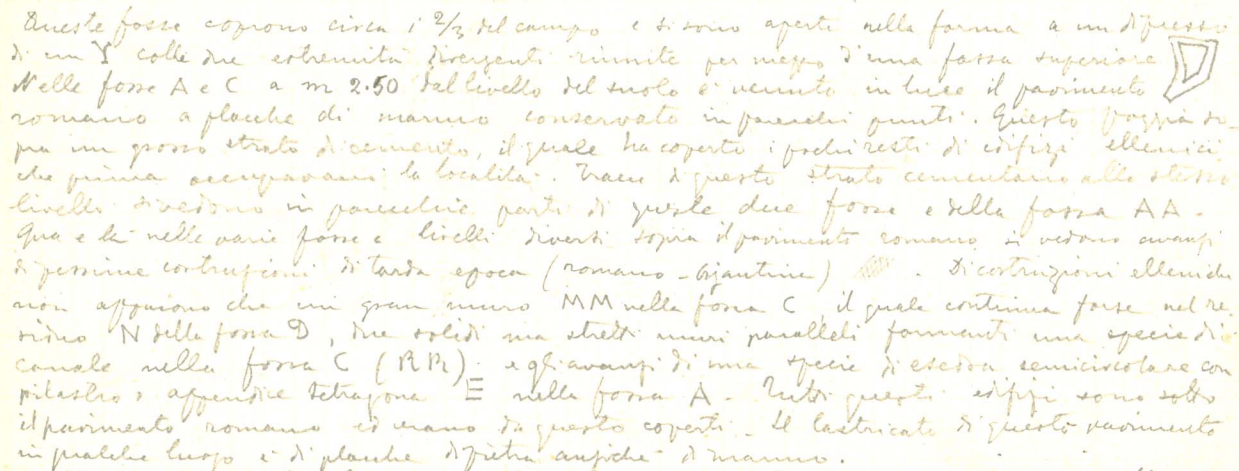 Queste fosse coprono circa i 2/3 del campo e si sono aperte nella forma a un dipresso
di un Y colle due estremità divergenti riunite per mezzo d'una fossa superiore
Nelle fosse A e C a m 2.50 dal livello del suolo è venuto in luce il pavimento
romano a placche di marmo conservato in parecchi punti. Questo poggia so-
pra un grosso strato di cemento, il quale ha coperto i pochi resti di edifizi ellenici
che prima occupavano la località. Tracce di questo strato cementano allo stesso
livello si vedono in parecchie parti di queste due fosse e della fossa AA.
Qua e là nelle varie fosse a livelli diversi sopra il pavimento romano si vedono avanzi
di pessime costruzioni di tarda epoca (romano-bizantina). Di costruzioni elleniche
non appaiono che un gran muro MM nella fossa C, il quale continua forse nel re-
siduo N della fossa D, due solidi ma stretti muri paralleli formanti una specie di
canale nella fossa C (RR), e gli avanzi di una specie di esedra semicircolare con
pilastro o appendice tetragona Ξ nella fossa A. Tutti questi edifizi sono sotto
il pavimento romano ed erano da questo coperti. Il lastricato di questo pavimento
in qualche luogo è di placche di pietra anziché di marmo.